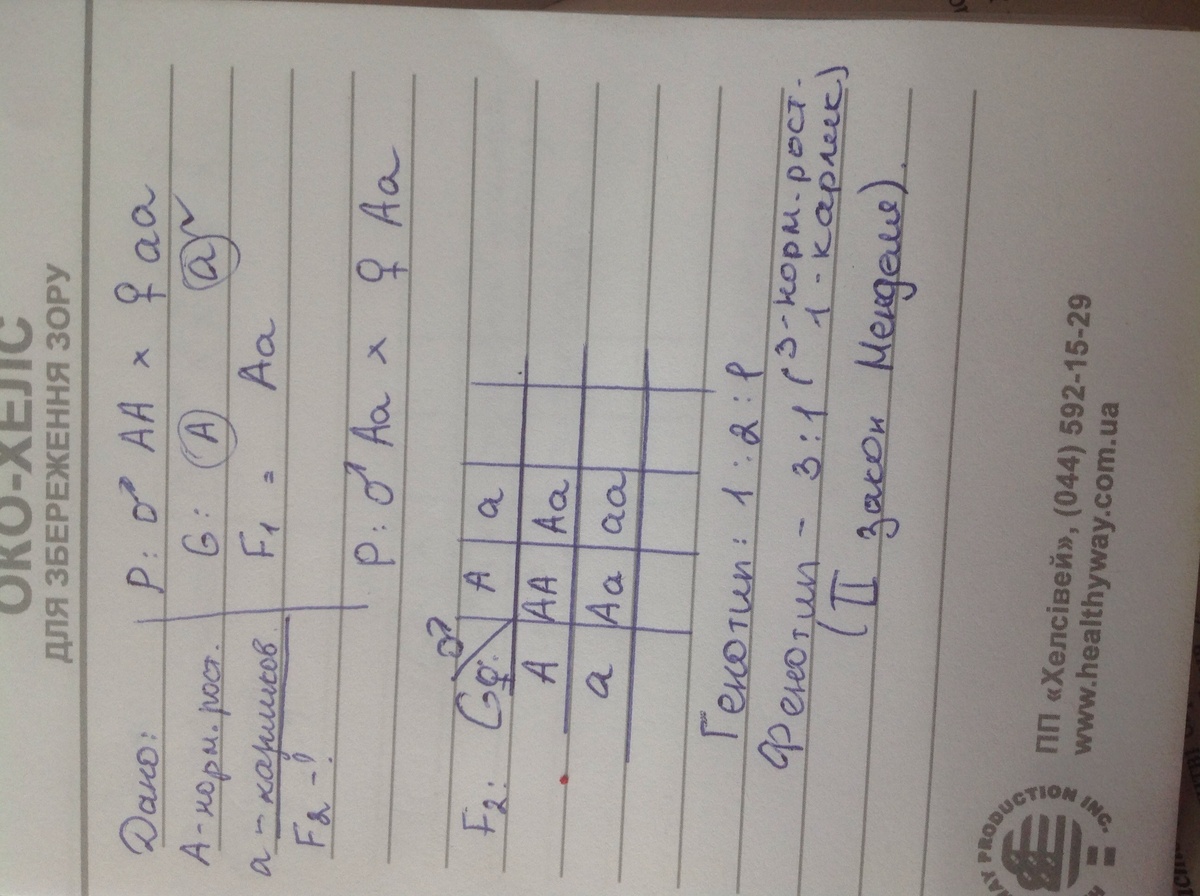 ОКО-ХЕЛІС
ДЛЯ ЗБЕРЕЖЕННЯ ЗОРУ
Дано:
А - норм. рост.
а - карликов
F2 - ?
P: ♂ AA × ♀ aa
G: A a
F1 = Aa
P: ♂ Aa × ♀ Aa
F2: G♀ ♂ A a
A AA Aa
a Aa aa
Генотип: 1 : 2 : 1
Фенотип - 3:1 (3-норм. рост.
1 - карлик)
(II закон Менделя).
ПП «Хелсівей», (044) 592-15-29
www.healthyway.com.ua
PRODUCTION INC.